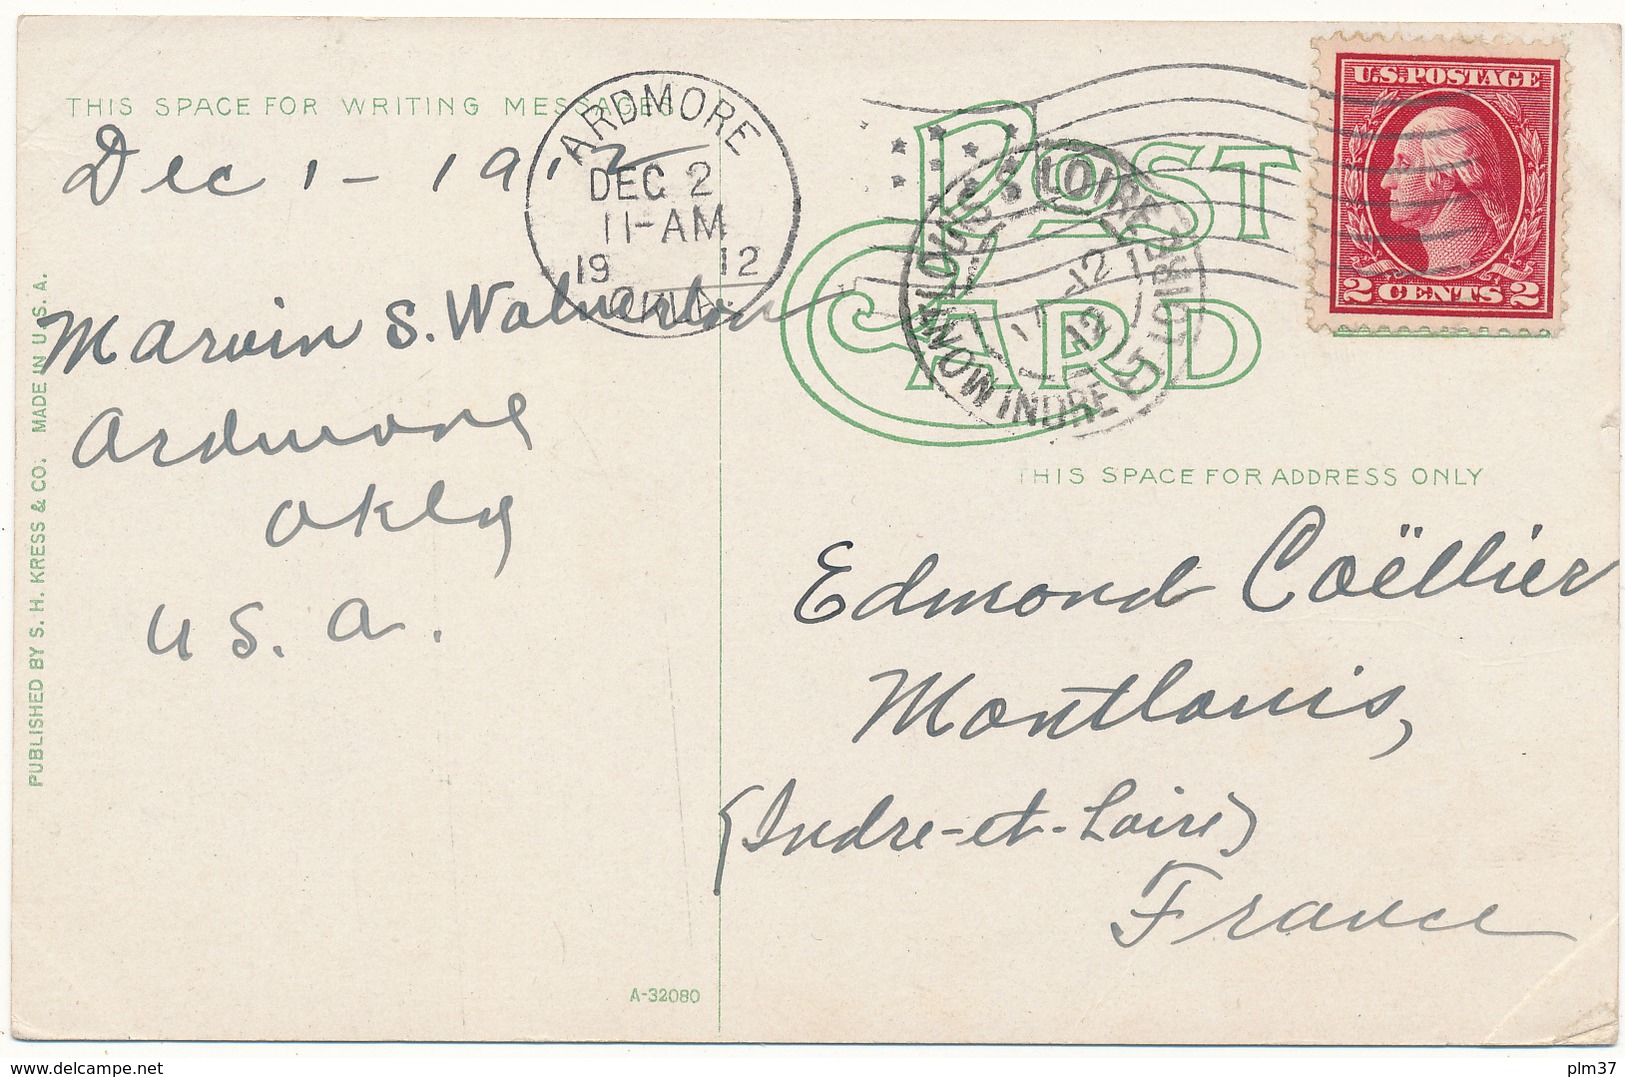 THIS SPACE FOR WRITING MESSAGES
Dec 1 - 1912
Marvin S. Wolverton
Ardmore
Okla
U S. A.
PUBLISHED BY S. H. KRESS & CO. MADE IN U. S. A.
A-32080
ARDMORE
DEC 2
11-AM
19 12
OKLA.
POST
CARD
MONTLOUIS S LOIRE
17 -12
12
INDRE ET LOIRE
U.S. POSTAGE
2 CENTS 2
THIS SPACE FOR ADDRESS ONLY
Edmond Coëllier
Montlouis,
(Indre-et-Loire)
France
www.delcampe.net
plm37